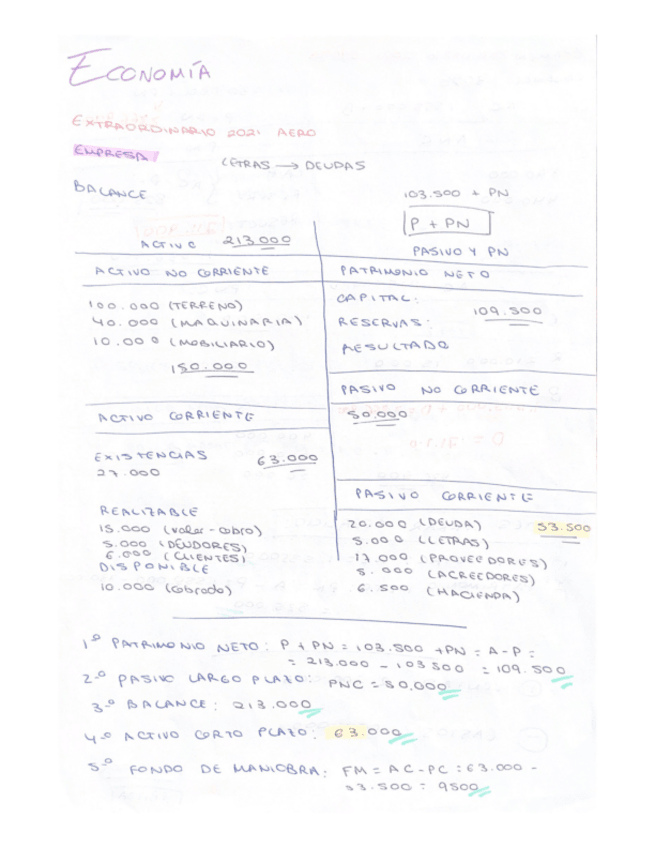 ECONOMÍA
EXTRAORDINARIO 2021 AERO
EMPRESA
LETRAS → DEUDAS
BALANCE
103.500 + PN
P + PN
ACTIVO 213.000
PASIVO Y PN
ACTIVO NO CORRIENTE
PATRIMONIO NETO
100.000 (TERRENO)
40.000 (MAQUINARIA)
10.000 (MOBILIARIO)
150.000
CAPITAL:
109.500
RESERVAS:
RESULTADO
PASIVO NO CORRIENTE
50.000
ACTIVO CORRIENTE
EXISTENCIAS 63.000
27.000
REALIZABLE
15.000 (valor-cobro)
5.000 (DEUDORES)
6.000 (CLIENTES)
DISPONIBLE
10.000 (cobrado)
PASIVO CORRIENTE
20.000 (DEUDA) 53.500
5.000 (LETRAS)
17.000 (PROVEEDORES)
5.000 (ACREEDORES)
6.500 (HACIENDA)
1º PATRIMONIO NETO: P + PN = 103.500 + PN = A - P =
= 213.000 - 103500 = 109.500
2º PASIVO LARGO PLAZO: PNC = 50.000
3º BALANCE: 213.000
4º ACTIVO CORTO PLAZO: 63.000
5º FONDO DE MANIOBRA: FM = AC - PC = 63.000 -
53.500 = 9500